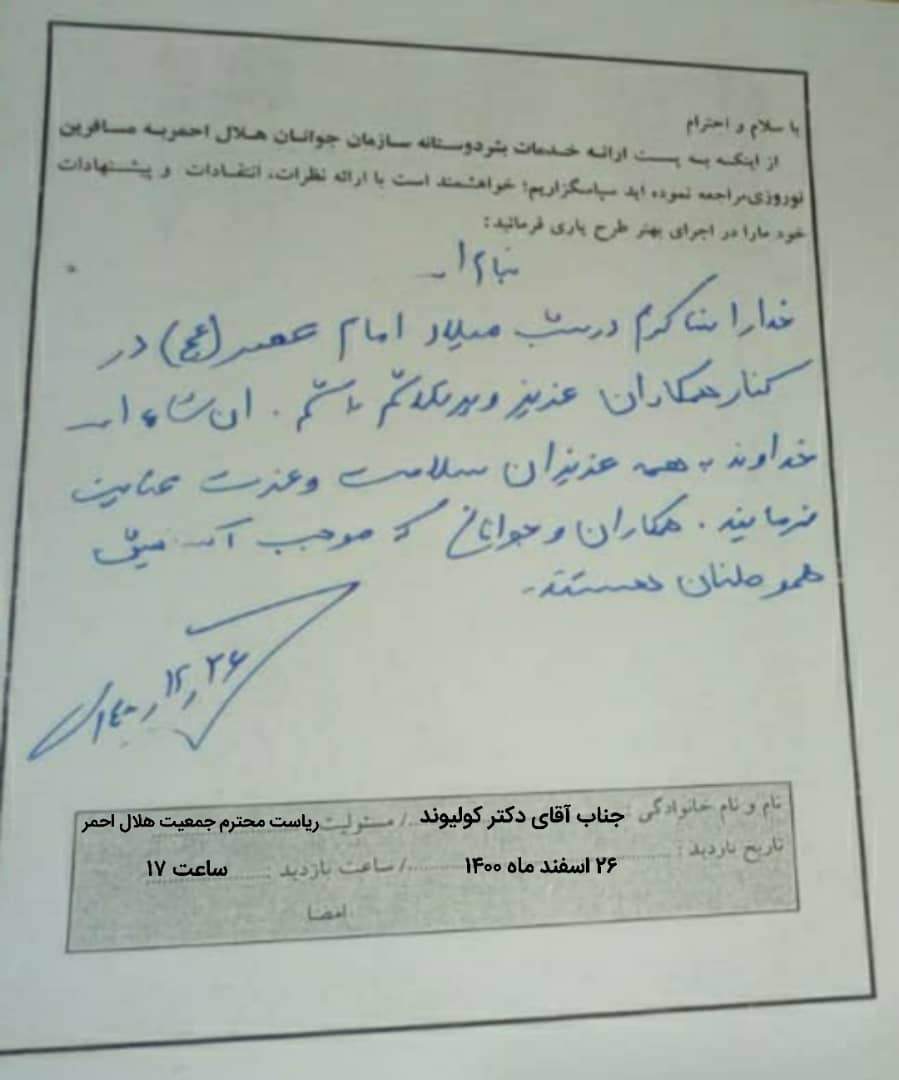 با سلام و احترام
از اینکه به پست ارائه خدمات بشردوستانه سازمان جوانان هلال احمربه مسافرین
نوروزی،مراجعه نموده اید سپاسگزاریم؛ خواهشمند است با ارائه نظرات، انتقادات و پیشنهادات
خود مارا در اجرای بهتر طرح یاری فرمائید:
بنام ا...
خدارا شاکرم در شب میلاد امام عصر (عج) در
کنار همکاران عزیز و پرتلاشم باشم . ان شاء ا...
خداوند به همه عزیزان سلامت و عزت عنایت
فرمایند . همکاران و جوانانی که موجب
هموطنان هستند.
۱۴۰۰,۱۲,۲۶
نام و نام خانوادگی : جناب آقای دکتر کولیوند /مسئولیت ریاست محترم جمعیت هلال احمر
تاریخ بازدید : ۲۶ اسفند ماه ۱۴۰۰ /ساعت بازدید : ساعت ۱۷
امضا